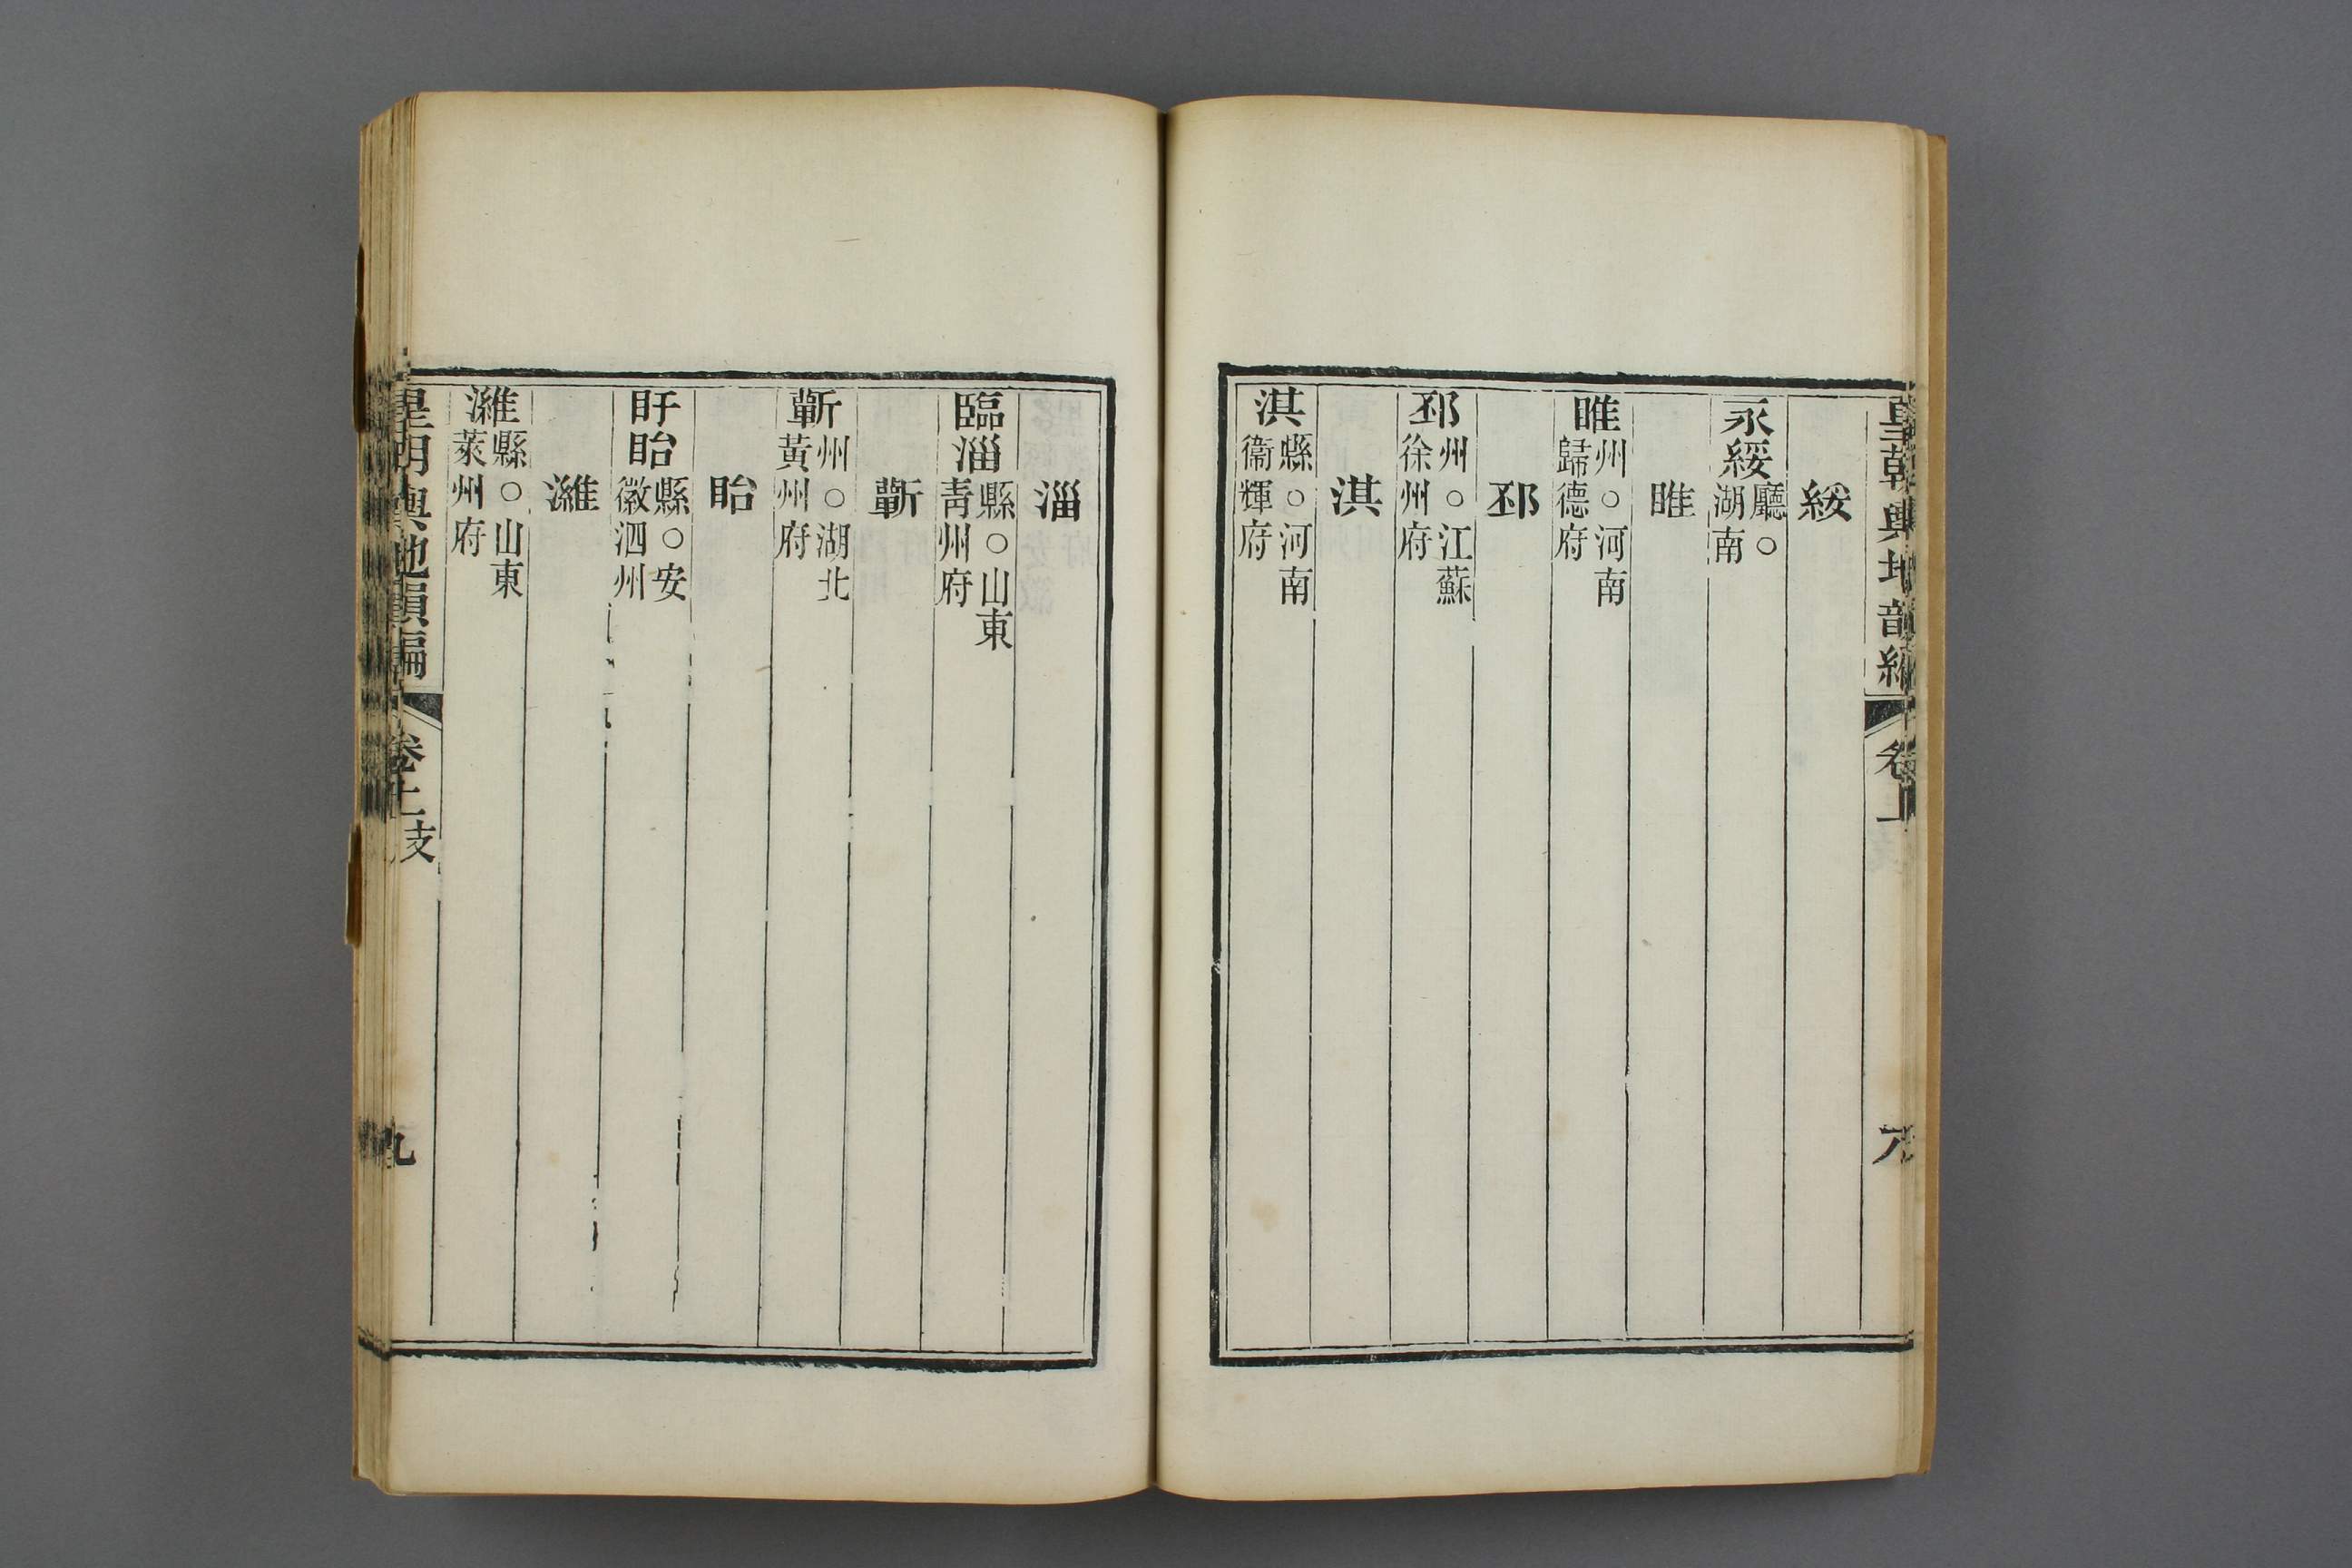 皇朝輿地韻編 卷上
綏
永綏廳○湖南
睢
睢州○河南歸德府
邳
邳州○江蘇徐州府
淇
淇縣○河南衞輝府
淄
臨淄縣○山東靑州府
蘄
蘄州○湖北黃州府
眙
盱眙縣○安徽泗州
濰
濰縣○山東萊州府
皇朝輿地韻編 卷上 支 九